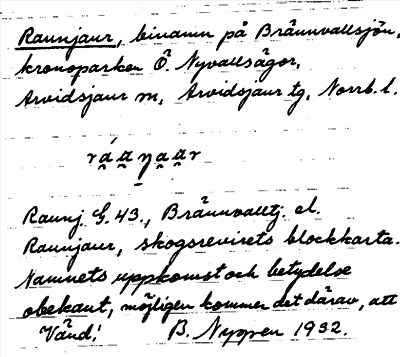 Raunjaur, binamn på Brännvallsjön,
kronoparken Ö. Nyvallsågor,
Arvidsjaur sn, Arvidsjaur tg, Norrb. l.
Raunj. G. 43., Brännvalltj. el.
Raunjaur, skogsrevirets blockkarta.
Namnets uppkomst och betydelse
obekant, möjligen kommer det därav, att
Vänd! B. Nyppen 1932.